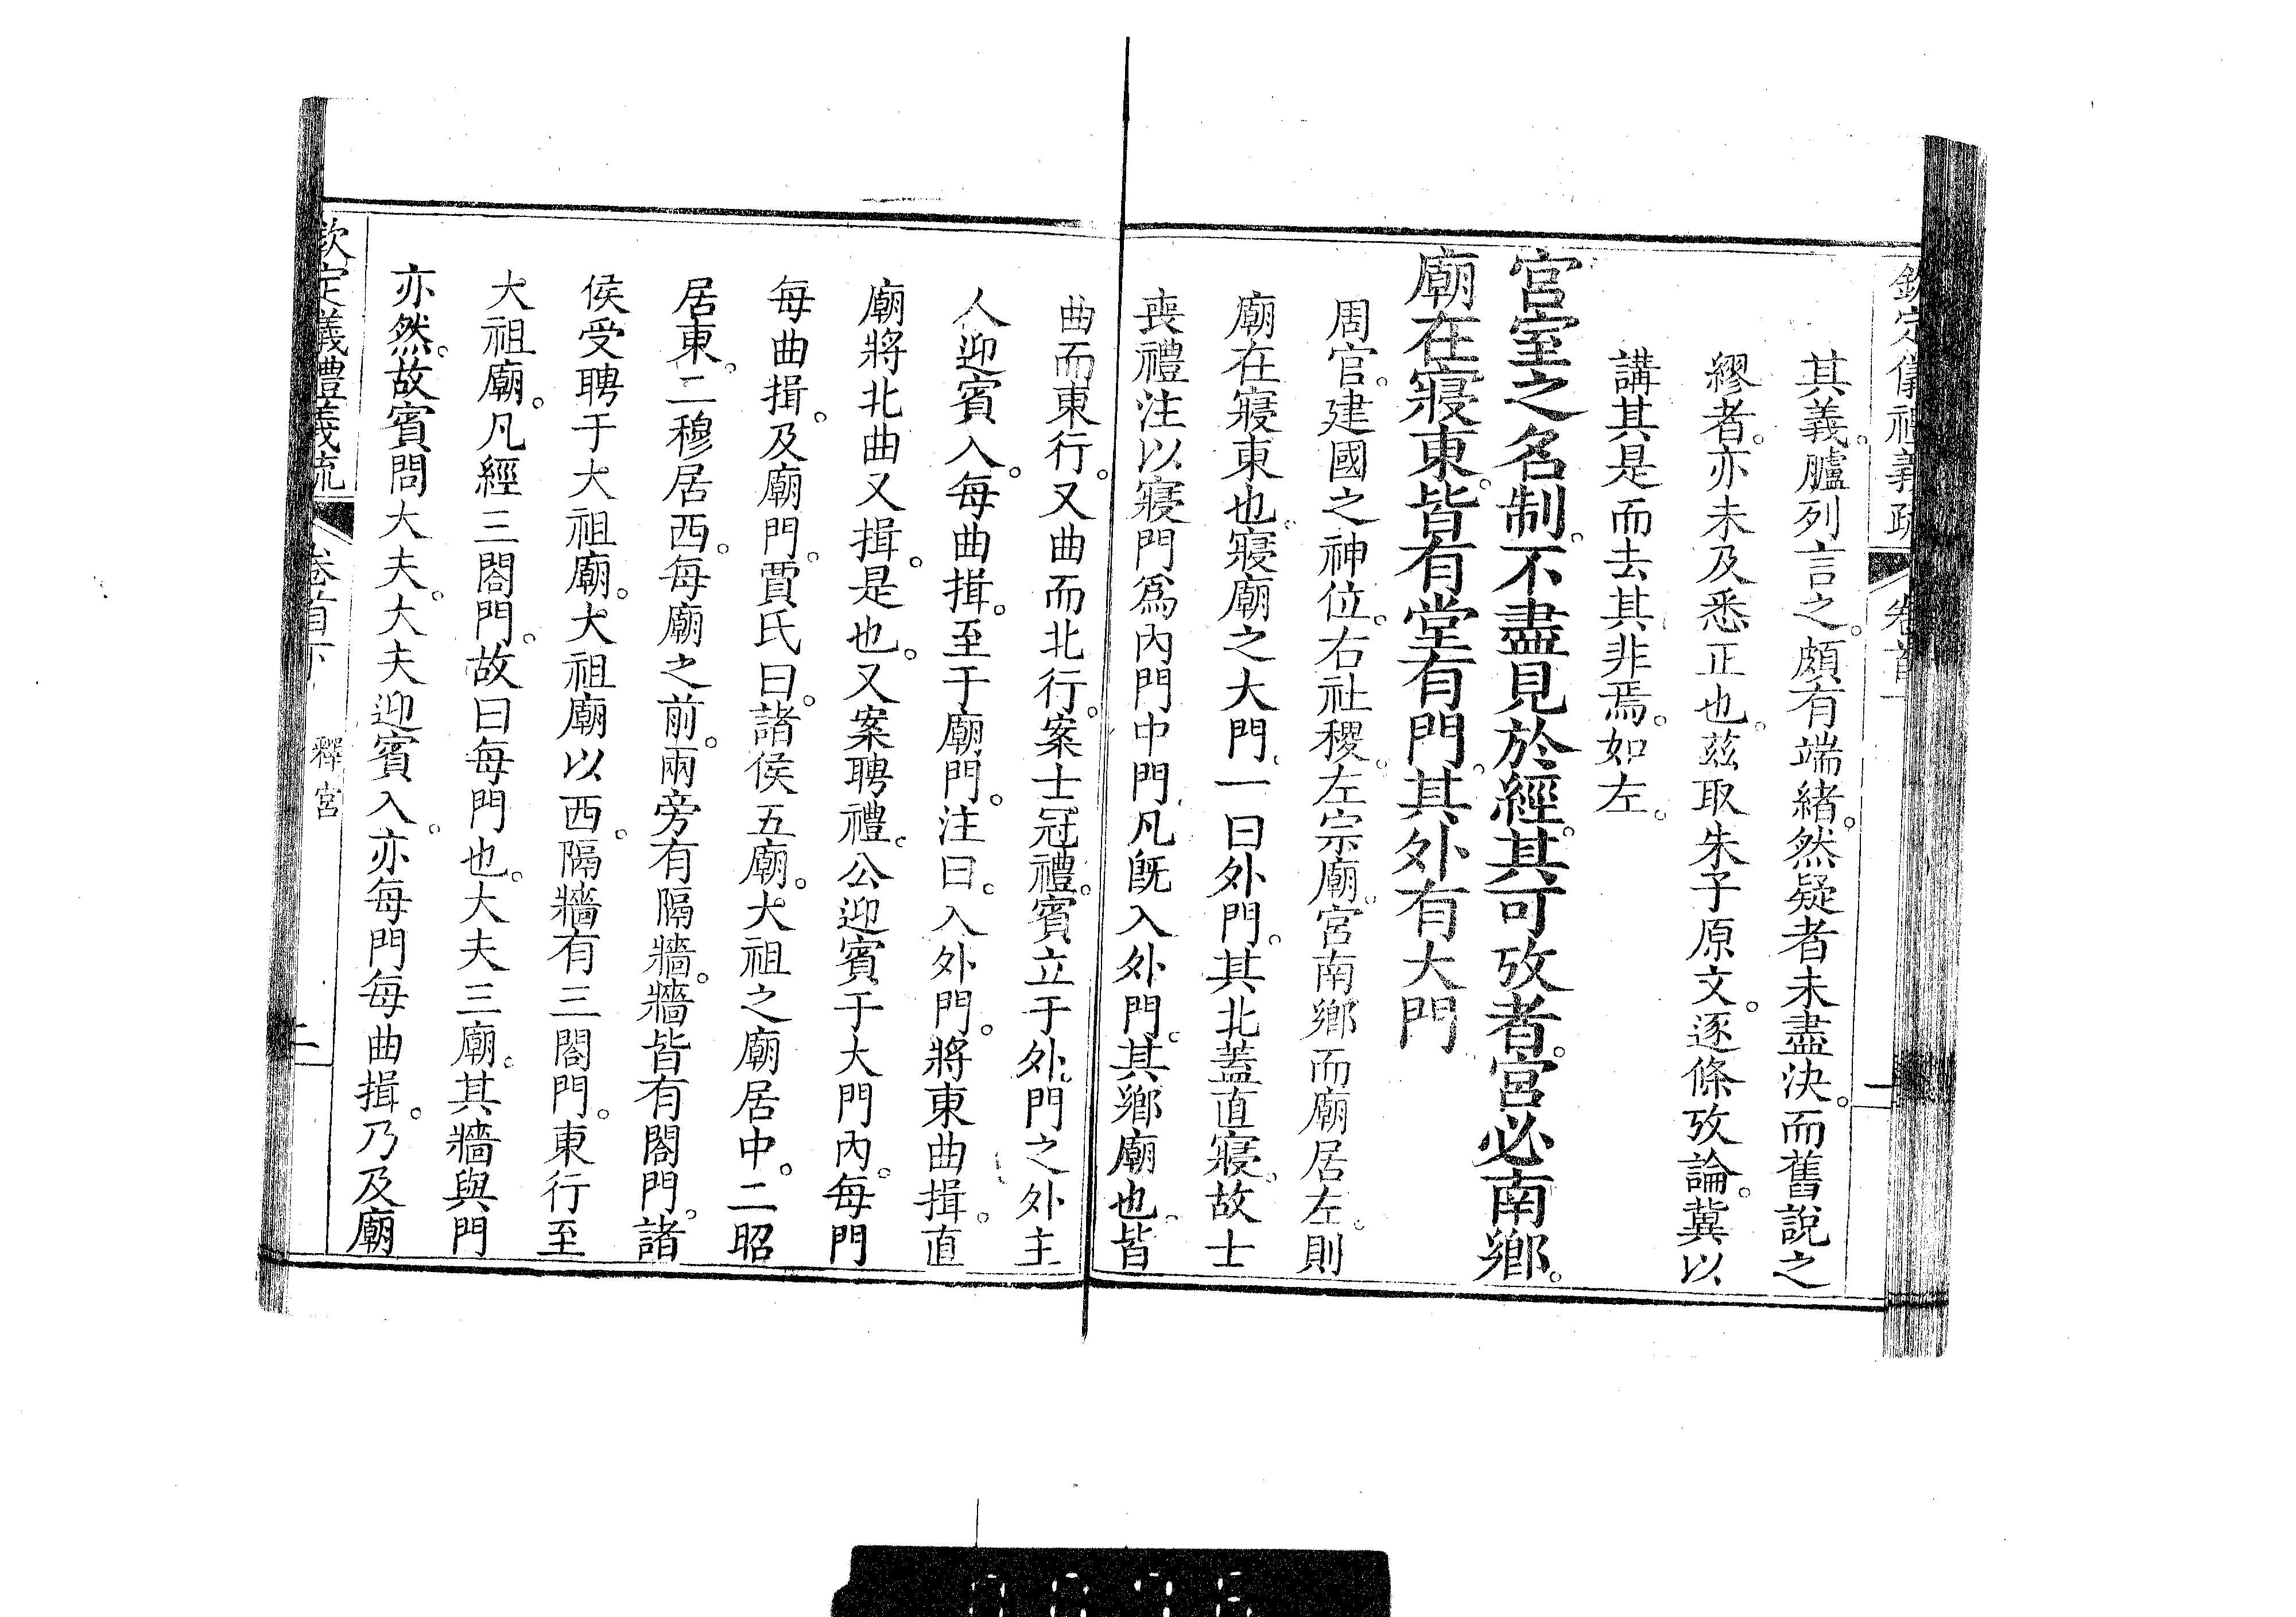 欽定儀禮義疏 卷首
其義。臚列言之。頗有端緒。然疑者未盡決。而舊說之
繆者。亦未及悉正也。茲取朱子原文。逐條攷論。冀以
講其是而去其非焉。如左。
宮室之名制。不盡見於經。其可攷者。宮必南鄉。
廟在寢東。皆有堂有門。其外有大門
周官。建國之神位。右社稷。左宗廟。宮南鄉而廟居左。則
廟在寢東也。寢廟之大門。一曰外門。其北蓋直寢。故士
喪禮注以寢門爲內門中門。凡旣入外門。其鄉廟也。皆
曲而東行。又曲而北行。案士冠禮。賓立于外門之外。主
人迎賓入。每曲揖。至于廟門。注曰。入外門。將東曲揖。直
廟將北曲又揖。是也。又案聘禮。公迎賓于大門內。每門
每曲揖。及廟門。賈氏曰。諸侯五廟。大祖之廟居中。二昭
居東。二穆居西。每廟之前。兩旁有隔牆。牆皆有閤門。諸
侯受聘于大祖廟。大祖廟以西。隔牆有三閤門。東行至
大祖廟。凡經三閤門。故曰每門也。大夫三廟。其牆與門
亦然。故賓問大夫。大夫迎賓入。亦每門每曲揖。乃及廟
欽定儀禮義疏 卷首下 釋宮 二